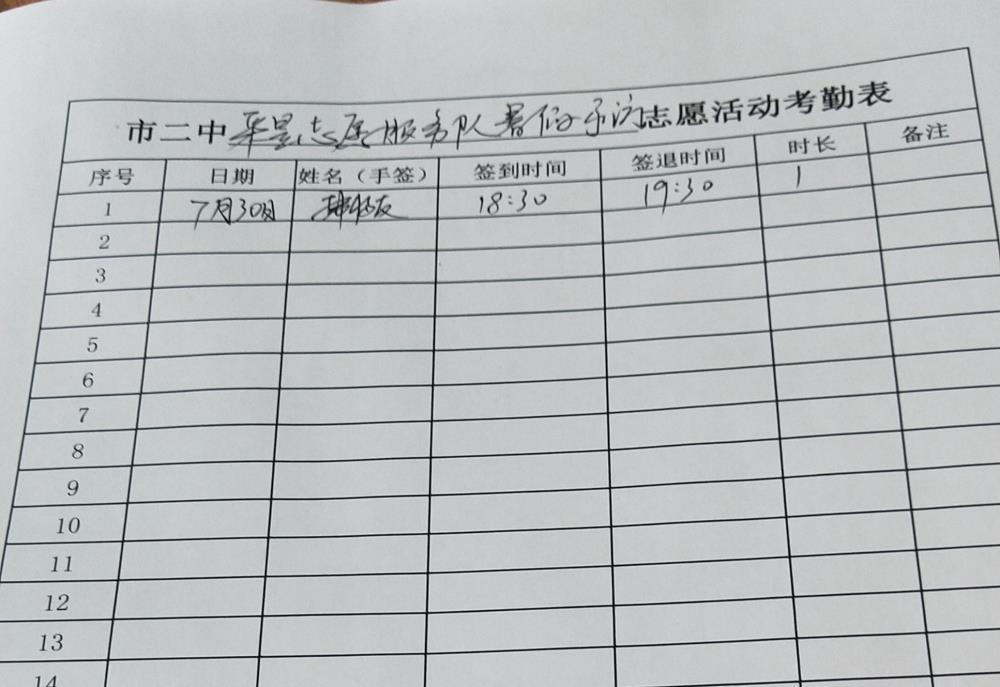 市二中星志愿服务队暑假志愿活动考勤表
序号 日期 姓名（手签） 签到时间 签退时间 时长 备注
1 7月30日 18:30 19:30 1
2
3
4
5
6
7
8
9
10
11
12
13
14